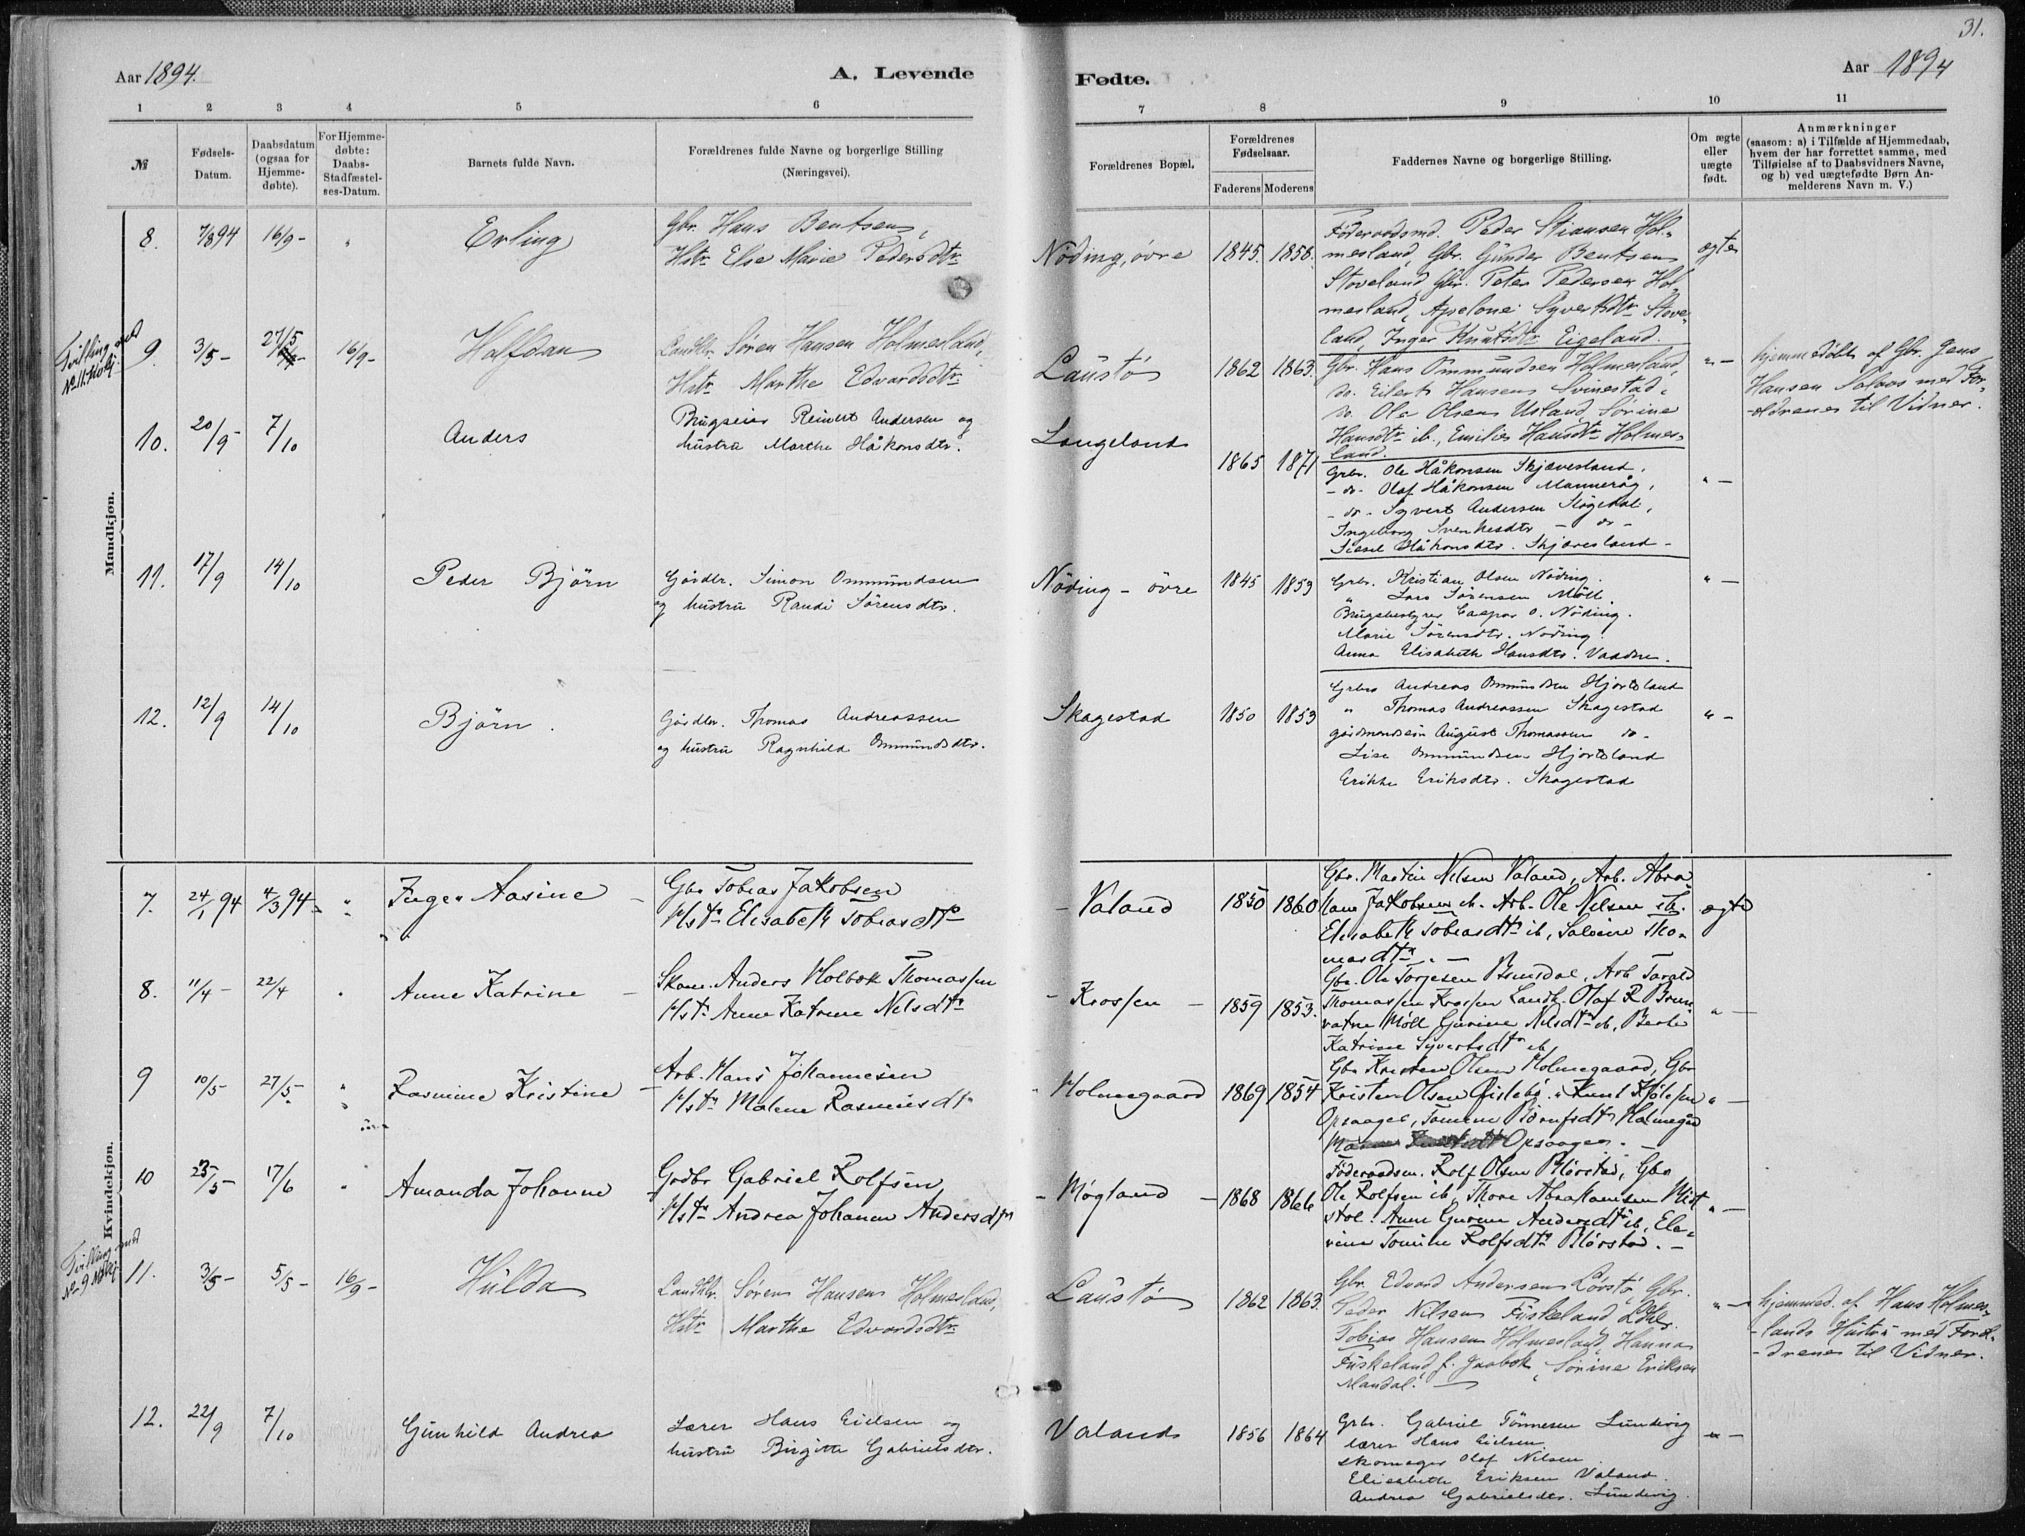 31.
Aar 1894.
A. Levende
Fødte.
Aar 1894
1 2 3 4 5 6
7 8 9 10 11
№
Fødsels-Datum.
Daabsdatum (ogsaa for Hjemmedøbte).
For Hjemmedøbte: Daabs-Stadfæstelses-Datum.
Barnets fulde Navn.
Forældrenes fulde Navne og borgerlige Stilling (Næringsvei).
Forældrenes Bopæl.
Forældrenes Fødselsaar.
Faderens Moderens
Faddernes Navne og borgerlige Stilling.
Om ægte eller uægte født.
Anmærkninger
(saasom: a) i Tilfælde af Hjemmedaab,
hvem der har forrettet samme, med
Tilføielse af to Daabsvidners Navne,
og b) ved uægtefødte Børn Anmelderens Navn m. V.)
Mandkjøn.
8. 7/8 94 16/9 - " Erling
Gbr. Hans Bentsen,
Hstr. Else Marie Pedersdtr.
Nöding, övre 1845. 1858.
Föderaadsmd. Peder Stiansen Holmesland, Gbr. Gunder Bentsen
Stoveland, Gbr. Peter Pedersen Holmesland, Apelone Syvertsdtr. Stoveland, Inger Knutsdtr. Eigeland.
ægte
Tvilling med No 11 Kvkj.
9. 3/5 - 27/5 16/9 - Halfdan
Landhdlr. Sören Hansen Holmesland,
Hstr. Marthe Edvardsdtr.
Laustö 1862 1863.
Gbr. Hans Ommundsen Holmesland,
do. Eilert Hansen Svinestad,
do. Ole Olsen Usland, Sörine
Hansdtr. ib., Emilie Hansdtr. Holmesland.
" -
hjemmedöbt af Gbr. Jens
Hansen Salaas med Forældrenes til Vidner.
10. 20/9 - 7/10 Anders
Brugseier Reinert Andersen og
hustru Marthe Håkonsdtr.
Langeland 1865 1871
Grbr. Ole Håkonsen Skjævesland,
- do - Olaf Håkonsen Manneråg,
- do - Syvert Andersen Stögedal,
Ingeborg Svenkesdtr. - do -
Sissel Håkonsdtr. Skjævesland -
" -
11. 17/9 14/10 Peder Björn
Gårdbr. Simon Ommundsen
og hustru Randi Sörensdtr.
Nöding - övre 1845 1853
Grbr. Kristian Olsen Nöding.
" Lars Sörensen Möll.
Brugsbestyrer Caspar O. Nöding.
Marie Sörensdtr. Nöding.
Anna Elisabeth Hansdtr. Vaadne.
" -
12. 12/9 14/10 Björn.
Gårdbr. Thomas Andreassen
og hustru Ragnhild Ommundsdtr.
Skagestad 1850 1853
Grbr. Andreas Ommundsen Hjortsland
" Thomas Andreassen Skagestad
August Thomassen do -
Lise Ommundsen Hjortsland
Erikke Eriksdtr. Skagestad
" -
Kvindekjøn.
7. 24/1 94 4/3 94 - " Inger Aasine -
Gbr Tobias Jakobsen
Hstr. Elisabeth Tobiasdtr
- Valand 1850 1860
Gbr. Martin Nilsen Valand, Arb. Abraham Jakobsen ib. Arb. Ole Nilsen ib.
Elisabeth Tobiasdtr ib, Salvine Thomasdtr " -
ægte
8. 11/4 - 22/4 " Anne Katrine -
Skom. Anders Holbæk Thomassen
Hstr. Anne Katrine Nilsdtr
- Krossen - 1859 1853.
Gbr. Ole Torjesen Arb Tarald
Thomassen Krossen Landh. Olaf R Brunvatne Möll Gurine Nilsdtr ib, Berte
Katrine Syvertsdtr ib
" -
9 10/5 - 27/5 - " Rasmine Kristine -
Arb. Hans Johannesen
Hstr Malene Rasmusdtr
- Holmegaard 1869 1854
Gbr Kristen Olsen Holmegaard, Gbr
Kristen Olsen Öislebö. " Knut Kjölesen
Opsaager, Tomine Holmegrd
Opsaager. -
" -
10 23/5 - 17/6 " Amanda Johanne
Grdbr Gabriel Rolfsen
Hstr Andrea Johanne Andersdtr
- Høgland - 1868 1866
Föderaadsm. Rolf Olsen Gbr
Ole Rolfsen ib, Tkore Abrahamsen Midtstol. Anne Gurine Andersdtr ib, Elevine Tomine Rolfsdtr -
" -
Tvilling med No 9 Mkj
11. 3/5 - 5/5 - 16/9 - Hulda
Landhdlr. Sören Hansen Holmesland,
Hstr. Marthe Edvardsdtr.
Laustö 1862 1863.
Gbr. Edvard Andersen Lövstö, Gbr.
Peder Nilsen Fuskeland, Ldhdlr.
Tobias Hansen Holmesland, Hanna
Fuskeland f. Jaabæk, Sörine Eriksen
Mandal. -
" -
hjemmed. af Hans Holmeslands Hustru med Forældrenes til Vidner.
12. 22/9 7/10 Gunhild Andrea
Lærer Hans Eielsen og
hustru Birgitte Gabrielsdtr.
Valand 1856 1864
Grbr. Gabriel Tönnesen Lundevig
Lærer Hans Eielsen.
Skomager Olaf Nilsen.
Elisabeth Eriksen Valand.
Andrea Gabrielsdtr. Lundevig.
" -